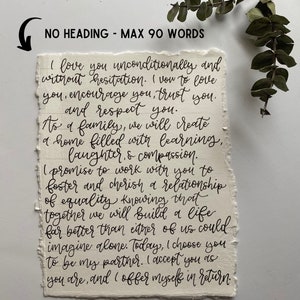 NO HEADING - MAX 90 WORDS
I love you unconditionally and
without hesitation. I vow to love
you, encourage you, trust you
and respect you.
As a family, we will create
a home filled with learning,
laughter, & compassion.
I promise to work with you to
foster and cherish a relationship
of equality knowing that
together we will build a life
far better than either of us could
imagine alone. Today, I choose you
to be my partner. I accept you as
you are, and I offer myself in return